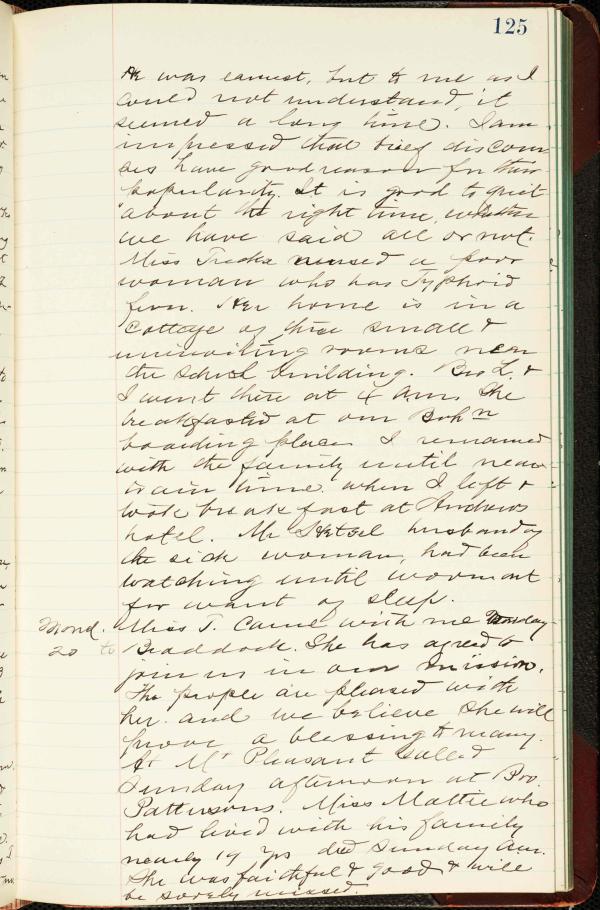 125
He was earnest, but to me as I
could not understand, it
seemed a long time. I am
impressed that brief discour
ses have good reason for their
popularity. It is good to quit
about the right time, whether
we have said all or not.
Miss nursed a poor
woman who has Typhoid
fever. Her home is in a
cottage of three small &
uninviting rooms near
the school building. Bro L. &
I went there at 4 a.m. She
breakfasted at our Bohn
boarding place. I remained
with the family until near
train time. when I left &
took breakfast at Andrews
hotel. Mr husband of
the sick woman, had been
watching until wornout
for want of sleep.
Mond. Miss T. came with me
20 to Braddock. She has agreed to
join us in our mission.
The people are pleased with
her. and we believe she will
prove a blessing to many.
At Mt Pleasant called
Sunday afternoon at Bro.
Pattersons. Miss Mattie who
had lived with his family
nearly 19 yrs died Sunday a.m.
She was faithful & good & will
be sorely missed.